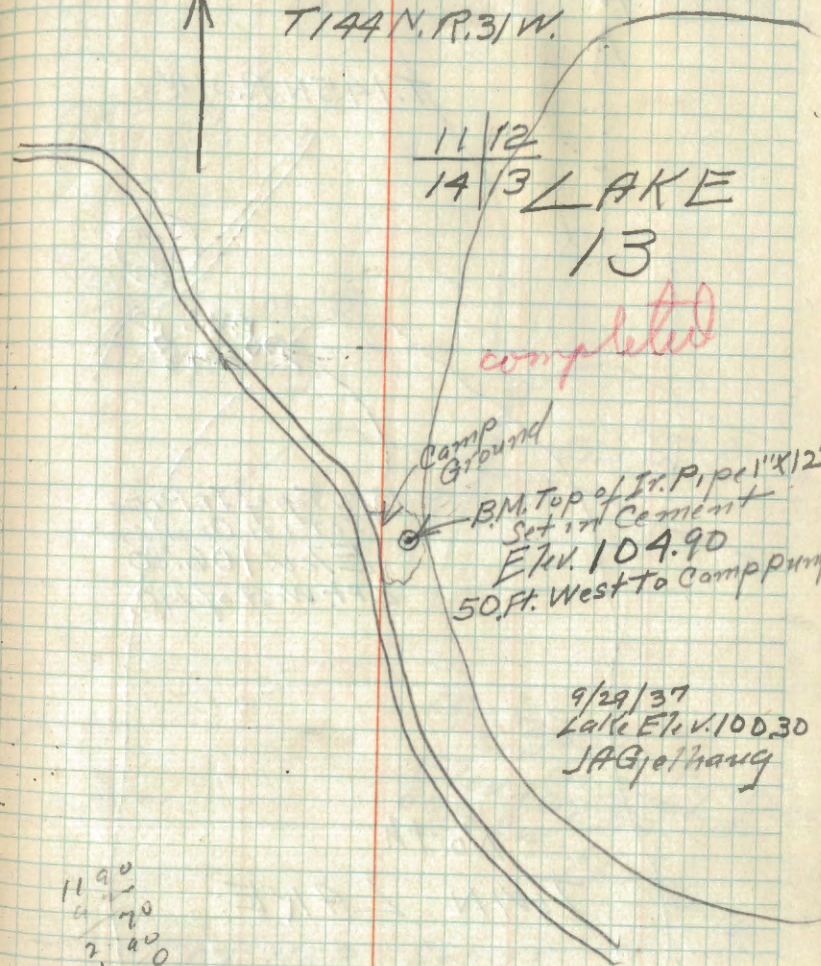 T144 N. R.31 W.
11 12
14 13
LAKE
13
completed
Camp
Ground
B.M. Top of Ir. Pipe 1"X12"
Set in Cement
Elev. 104.90
50 Ft. West To Camp Pump
9/29/37
Lake Elev. 100.30
JAGjelhaug
11 90
70
2